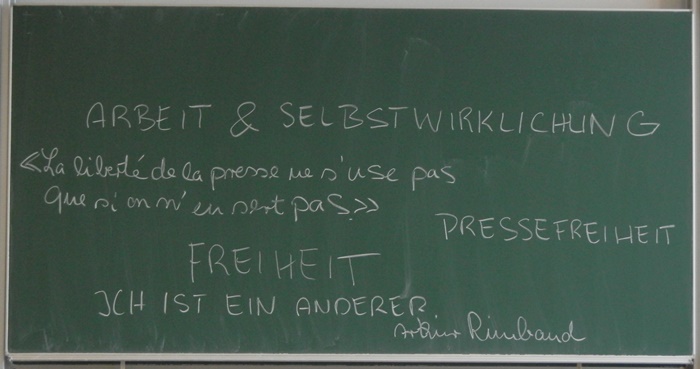 ARBEIT & SELBSTWIRKLICHUNG
«La liberté de la presse ne s'use pas
que si on n'en sert pas.»
PRESSEFREIHEIT
FREIHEIT
ICH IST EIN ANDERER
Arthur Rimbaud